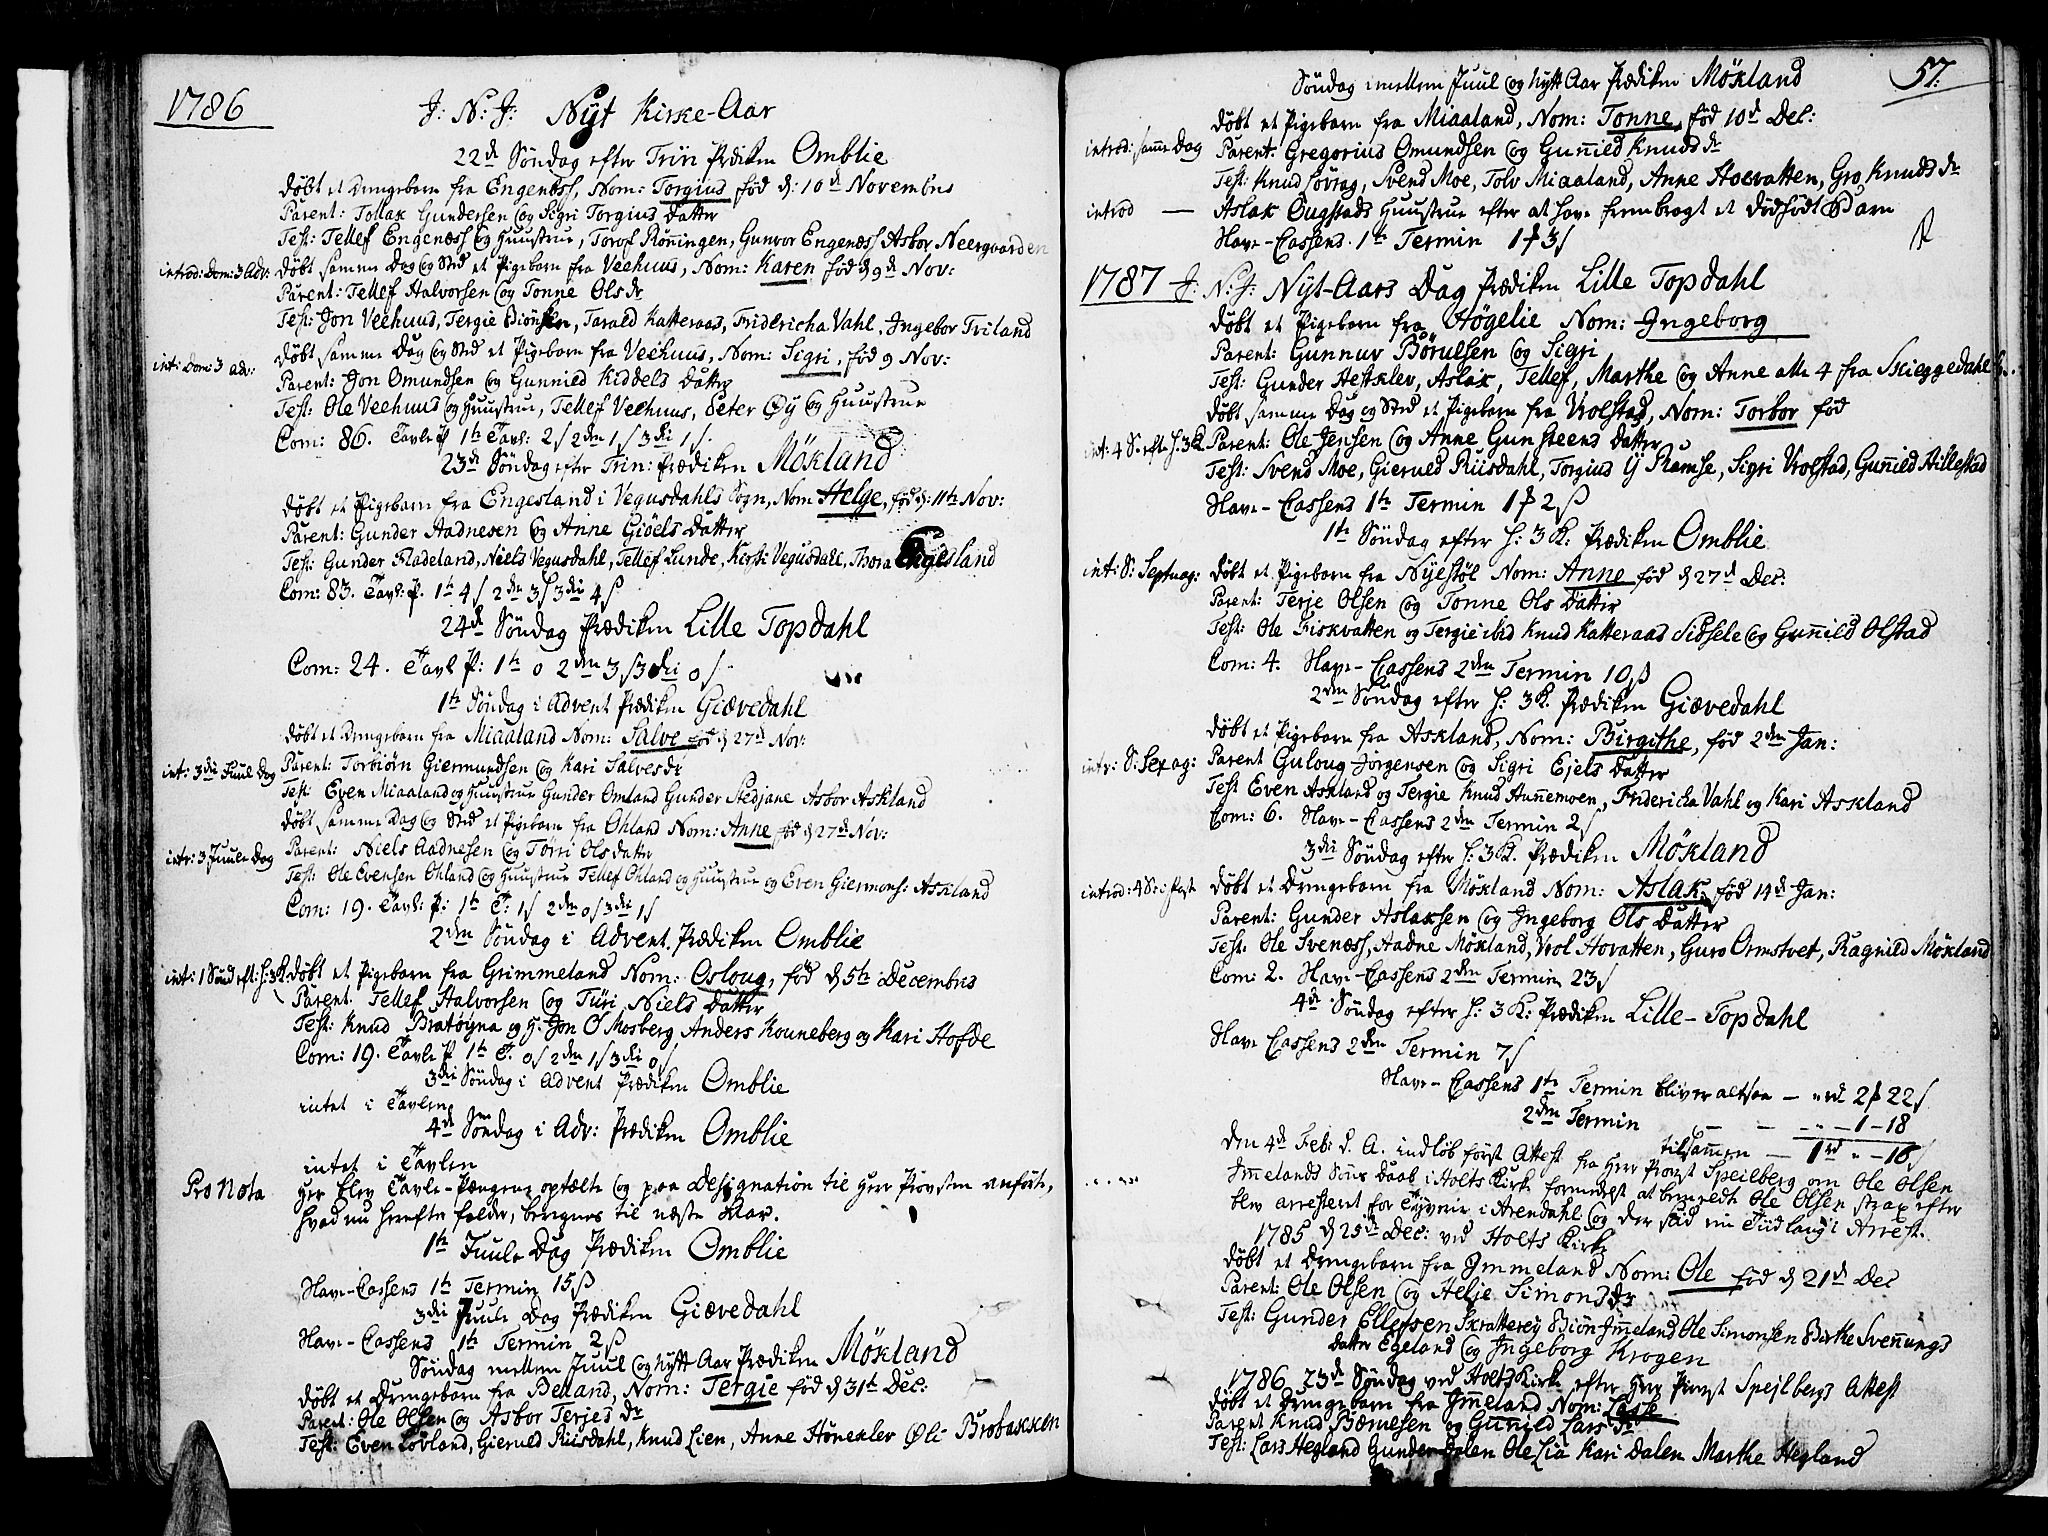 1786
J: N: J: Nyt Kirke-Aar
22d Søndag efter Trin Prædiken Omblie
døbt et drengebarn fra Engenæss, Nom: Torgius fød d: 10d Novembris
Parent: Tollak Gundersen og Sigri Torgius datter
Test: Tellef Engenæss og Huustrue, Torof Røningen, Gunvor Engenæss Asbor Neergaarden
introd: Dom: 3 Adv: døbt samme Dag og Sted et Pigebarn fra Veehuus, Nom: Karen fød d 9d Nov:
Parent: Tellef Halvorsen og Tonne Olsdr
Test: Jon Veehuus, Tergie Biønsen, Tarald Katteraas, Fridericha Vahl, Ingebor Triland
int: Dom: 3 adv: døbt samme Dag og Sted et Pigebarn fra Veehuus, Nom: Sigri, fød 9 Nov:
Parent: Jon Omundsen og Gunnild Kiddels datter
Test: Ole Veehuus og Huustrue, Tellef Veehuus, Peter Øy og Huustrue
Com: 86. Tavle P 1te Tavl: 2 s 2den 1 s 3die 1 s.
23d Søndag efter Trin: Prædiken Mökland
døbt et Pigebarn fra Engesland i Vegusdahls Sogn, Nom Helge, fød d: 11te Nov:
Parent: Gunder Aadnesen og Anne Giøels datter
Test: Gunder Fladeland, Niels Vegusdahl, Tellef Lunde, Kirsti Vegusdale, Thora Engesland
Com: 83. Tavl: P. 1te 4 s 2den 3 s 3die 4 s
24d Søndag Prædiken Lille Topdahl
Com: 24. Tavl P: 1te 0 2den 3 s 3die 0 s
1te Søndag i Advent Prædiken Giævedahl
døbt et drengebarn fra Miaaland Nom: Salve fød d 27d Nov:
int: 3die Juul Dag Parent: Torbiørn Giermundsen og Kari Salvesdr
Test: Even Miaaland og Huustrue Gunder Omland Gunder Stedjane Asbor Askland
døbt samme Dag og Sted et Pigebarn fra Ohland Nom: Anne fød d 27d Nov:
intr: 3 Juule Dag Parent: Niels Aadnesen og Torri Olsdatter
Test: Ole Evensen Ohland og Huustrue Tellef Ohland og Huustrue og Even Giermons: Askland
Com: 19. Tavl: P: 1te T: 1 s 2den 0 s 3die 1 s
2den Søndag i Advent. Prædiken Omblie
int: 1 Sønd eft: H: 3 K: døbt et Pigebarn fra Grimmeland Nom: Osloug, fød d 5te Decembris
Parent. Tellef Halvorsen og Turi Niels datter
Test: Knud Bratøyna og H: Jon O Mosberg Anders Kouneberg og Kari Hofde
Com: 19. Tavle P 1te T. 0 s 2den 1 s 3die 0 s
3die Søndag i Advent Prædiken Omblie
intet i Tavlen
4d Søndag i Adv: Prædiken Omblie
intet i Tavlen
Pro Nota Her blev Tavle-Pengene optælte og paa Designation til Herr Provsten anførte,
hvad nu herefter falder, beregnes til næste Aar.
1te Juule Dag Prædiken Omblie
Have-Cassens 1te Termin 15 s
3die Juule Dag Prædiken Giævedahl
Have-Cassens 1te Termin 2 s
Søndag mellem Juul og Nytt Aar Prædiken Mökland
døbt et drengebarn fra Beiland, Nom: Tergie fød d 31te Dec:
Parent: Ole Olsen og Asbor Terjesdr
Test: Even Løvland, Gierued Riisdahl, Knud Lien, Anne Hønekler Oli Brobakken
57.
Søndag imellem Juul og Nytt Aar Prædiken Mökland
døbt et Pigebarn fra Miaaland, Nom: Tonne, fød 10d Dec:
introd: samme Dag Parent. Gregorius Omundsen og Gunnild Knudsdr
Test: Knud Løvrag, Svend Moe, Tolv Miaaland, Anne Hocvatten, Gro Knudsdr
introd — Aslak Ougstads Huustrue efter at have frembragt et dødfødt Barn
Have-Cassens. 1te Termin 1 ₰ 3 s
1787 J: N: J: Nyt-Aars Dag Prædiken Lille Topdahl
døbt et Pigebarn fra Høgelie Nom: Ingeborg
Parent: Gunnuv Børulsen og Sigri
Test: Gunder Hestklev, Aslak, Tellef, Marthe og Anne alle 4 fra Skieggedahl
døbt samme Dag og Sted et Pigebarn fra Vrolstad, Nom: Torbor fød
int: 4 S: efter H. 3 K Parent: Ole Jensen og Anne Gunsteens datter
Test: Svend Moe, Gierued Riisdahl, Torgius y Ramse, Sigri Vrolstad, Gunild Hillestad
Have-Cassens 1te Termin 1 ₰ 2 s
1te Søndag efter H: 3 K. Prædiken Omblie
int: S: Septuag: døbt et Pigebarn fra Nyestøl Nom: Anne fød d 27d Dec:
Parent: Terje Olsen og Tonne Ols datter
Test: Ole Fiskvatten og Tergie ibid Knud Katteraas Sidsele og Gunnild Olstad
Com: 4. Have-Cassens 2den Termin 10 s
2den Søndag efter H: 3 K. Prædiken Giævedahl
døbt et Pigebarn fra Askland, Nom: Birgithe, fød 2den Jan:
intr: S: Sexag: Parent Guloug Jørgensen og Sigri Ejels datter
Test Even Askland og Tergie Knud Aunnemoen, Fridericha Vahl og Kari Askland
Com: 6. Have-Cassens 2den Termin 2 s
3die Søndag efter H: 3 K. Prædiken Mökland
introd: 4 S: i Fast døbt et drengebarn fra Mökland Nom: Aslak, fød 14d Jan:
Parent: Gunder Aslaksen og Ingeborg Ols datter
Test. Ole Svenæss, Aadne Mökland, Vrol Hovatten, Guro Ormstvet, Ragnild Mökland
Com: 2. Have-Cassens 2den Termin 23 s
4d Søndag efter H: 3 K: Prædiken Lille-Topdahl
Have Cassens 2den Termin 7 s
Have-Cassens 1te Termin bliver altsaa — „rd 2 ₰ 22 s
2den Termin — — „ - 1 - 18
tilsammen — 1rd „ - 16 s
Den 4d Feb: d. A. indløb først Attest fra Herr Provst Speilberg om Ole Olsen
Immelands Søns daab i Holts Kirk formedelst at bemeldte Ole Olsen strax efter
blev arresteret for Tyverie i Arendahl og der sad en Tiidlang i Arrest.
1785 d 25d Dec: ved Holts Kirke
døbt et drengebarn fra Immeland Nom: Ole fød d 21d Dec
Parent: Ole Olsen og Helje Simonsdr
Test: Gunder Ellefsen Skratterey Biøn Immeland Ole Simonsen Birthe Svennungs
datter Egeland og Ingeborg Krogen
1786 23d Søndag ved Holts Kirke efter Herr Provst Spejlbergs Attest
døbt et drengebarn fra Immeland Nom: Lasse
Parent Knud Bærulsen og Gunild Lars dr
Test: Lars Hegland Gunder Dalen Ole Lia Kari Dalen Marthe Hegland